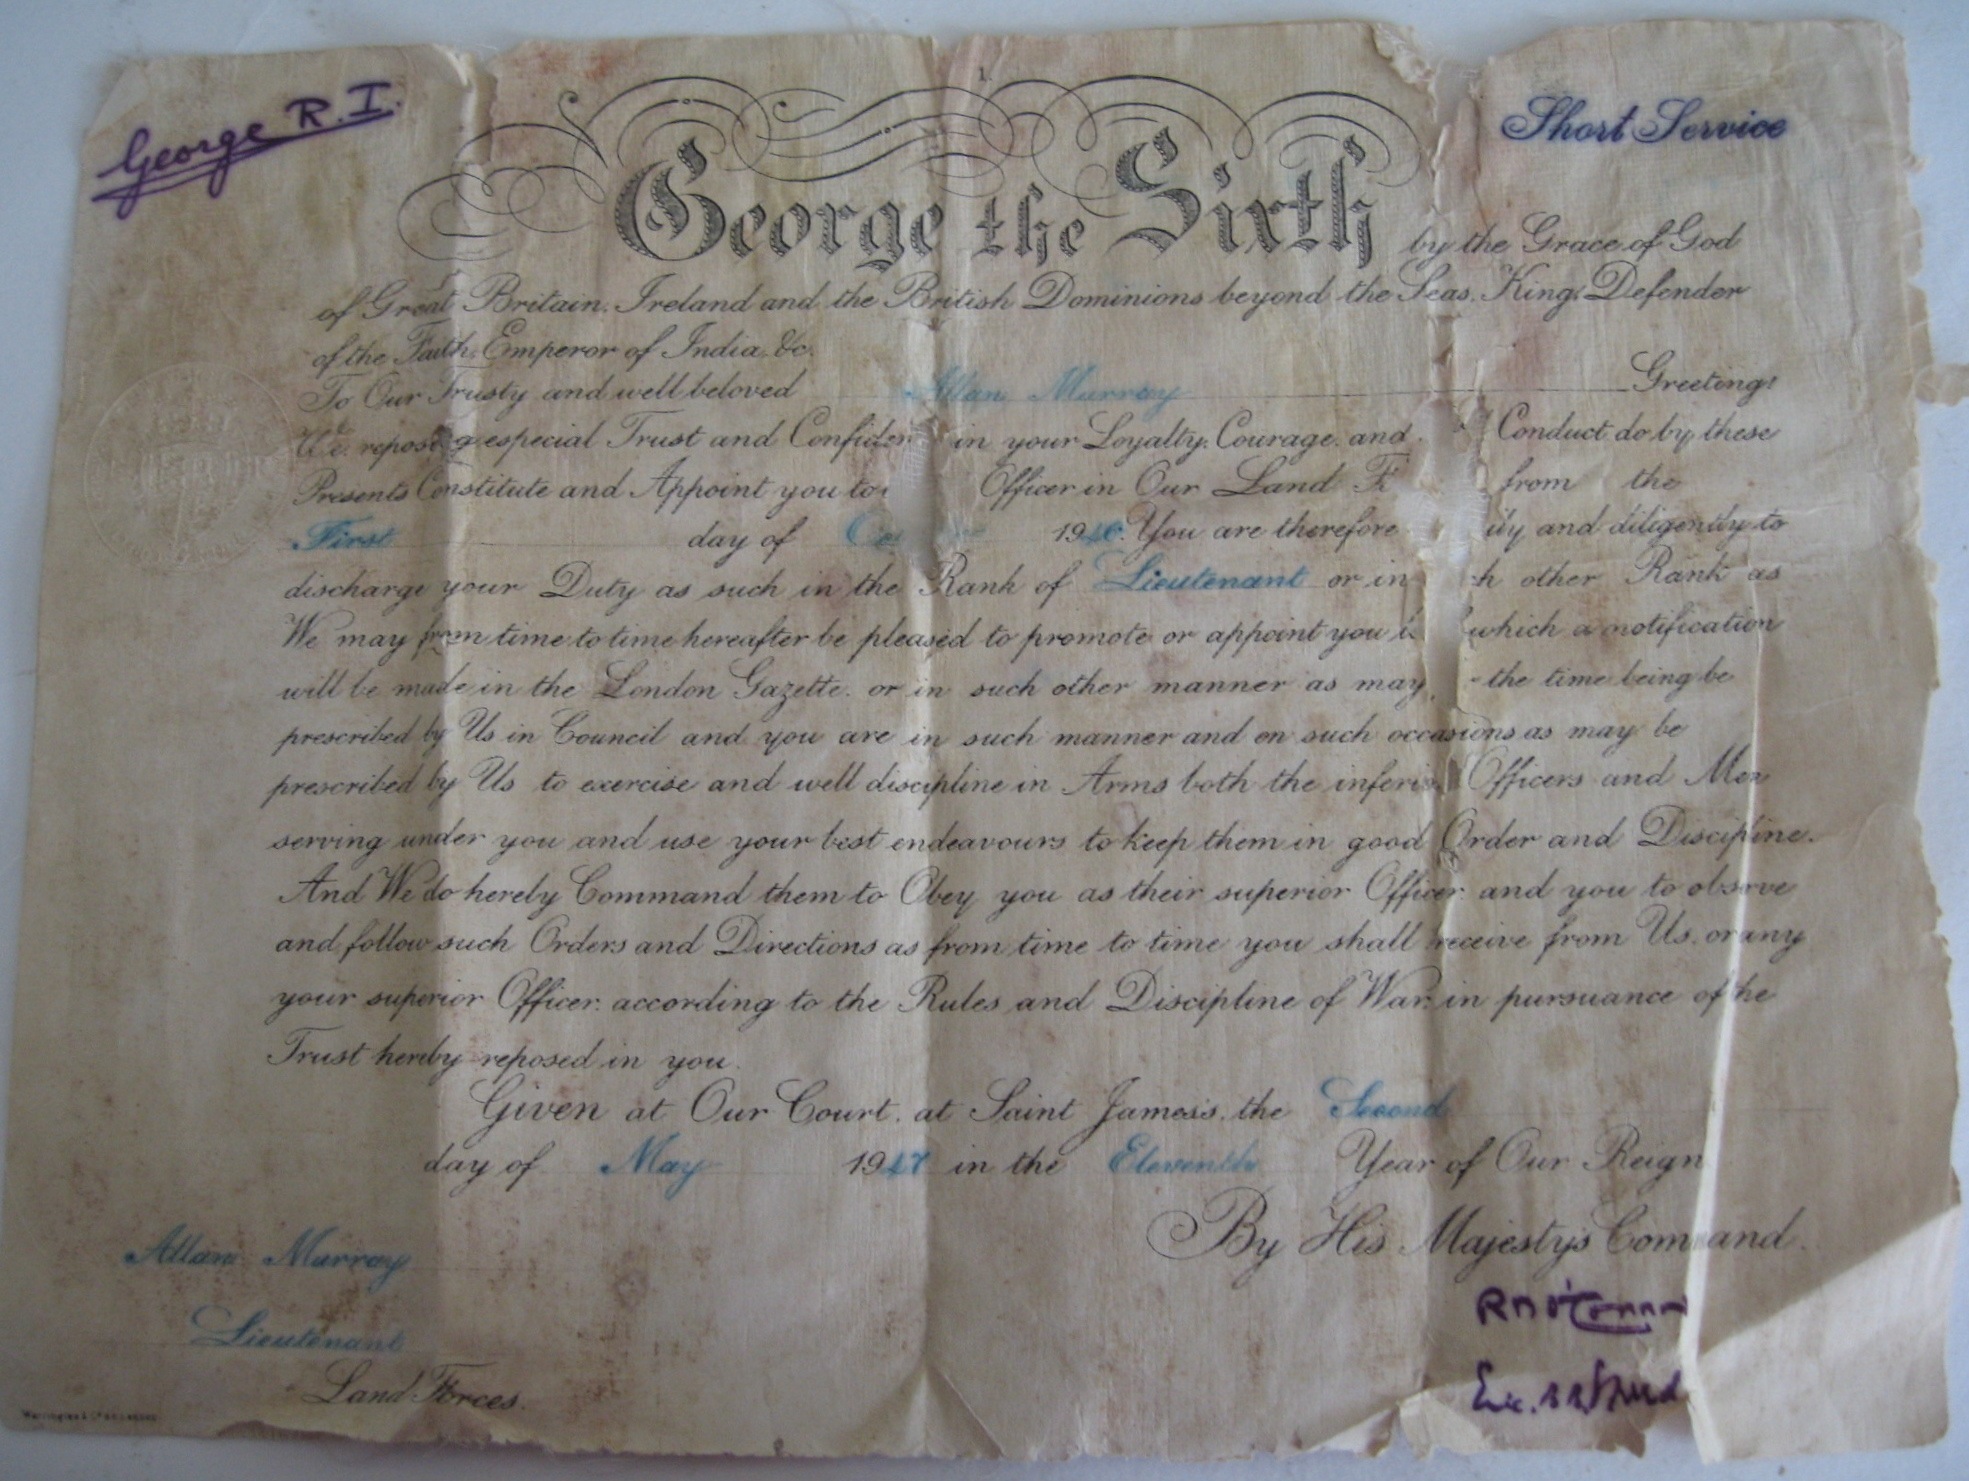 George R.I.
Short Service
George the Sixth by the Grace of God
of Great Britain, Ireland and the British Dominions beyond the Seas, King, Defender
of the Faith, Emperor of India, &c.
To Our Trusty and well beloved Allan Murray Greeting:
We, reposing especial Trust and Confiden in your Loyalty, Courage, and Conduct, do by these
Presents Constitute and Appoint you to Officer in Our Land F from the
First day of 1946. You are therefore and diligently to
discharge your Duty as such in the Rank of Lieutenant or in other Rank as
We may from time to time hereafter be pleased to promote or appoint you which a notification
will be made in the London Gazette, or in such other manner as may the time being be
prescribed by Us in Council and you are in such manner and on such occasions as may be
prescribed by Us to exercise and well discipline in Arms both the inferior Officers and Men
serving under you and use your best endeavours to keep them in good Order and Discipline.
And We do hereby Command them to Obey you as their superior Officer and you to observe
and follow such Orders and Directions as from time to time you shall receive from Us, or any
your superior Officer, according to the Rules and Discipline of War, in pursuance of the
Trust hereby reposed in you.
Given at Our Court, at Saint James's, the Second
day of May 1947 in the Eleventh Year of Our Reign
By His Majesty's Command.
Allan Murray
Lieutenant
Land Forces.